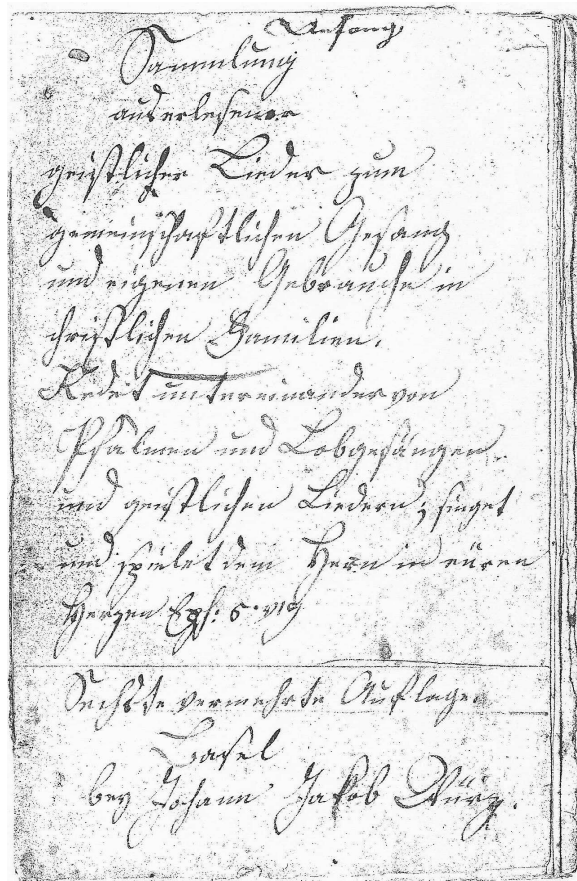 Anfang
Sammlung
auserlesener
geistlicher Lieder zum
gemeinschaftlichen Gesang
und eigenen Gebrauche in
christlichen Familien.
Redet untereinander von
Psalmen und Lobgesängen
und geistlichen Liedern; singet
und spielet dem Herrn in euren
Herzen Eph: 5. v19
Sechste vermehrte Auflage.
Basel
bey Johann Jakob